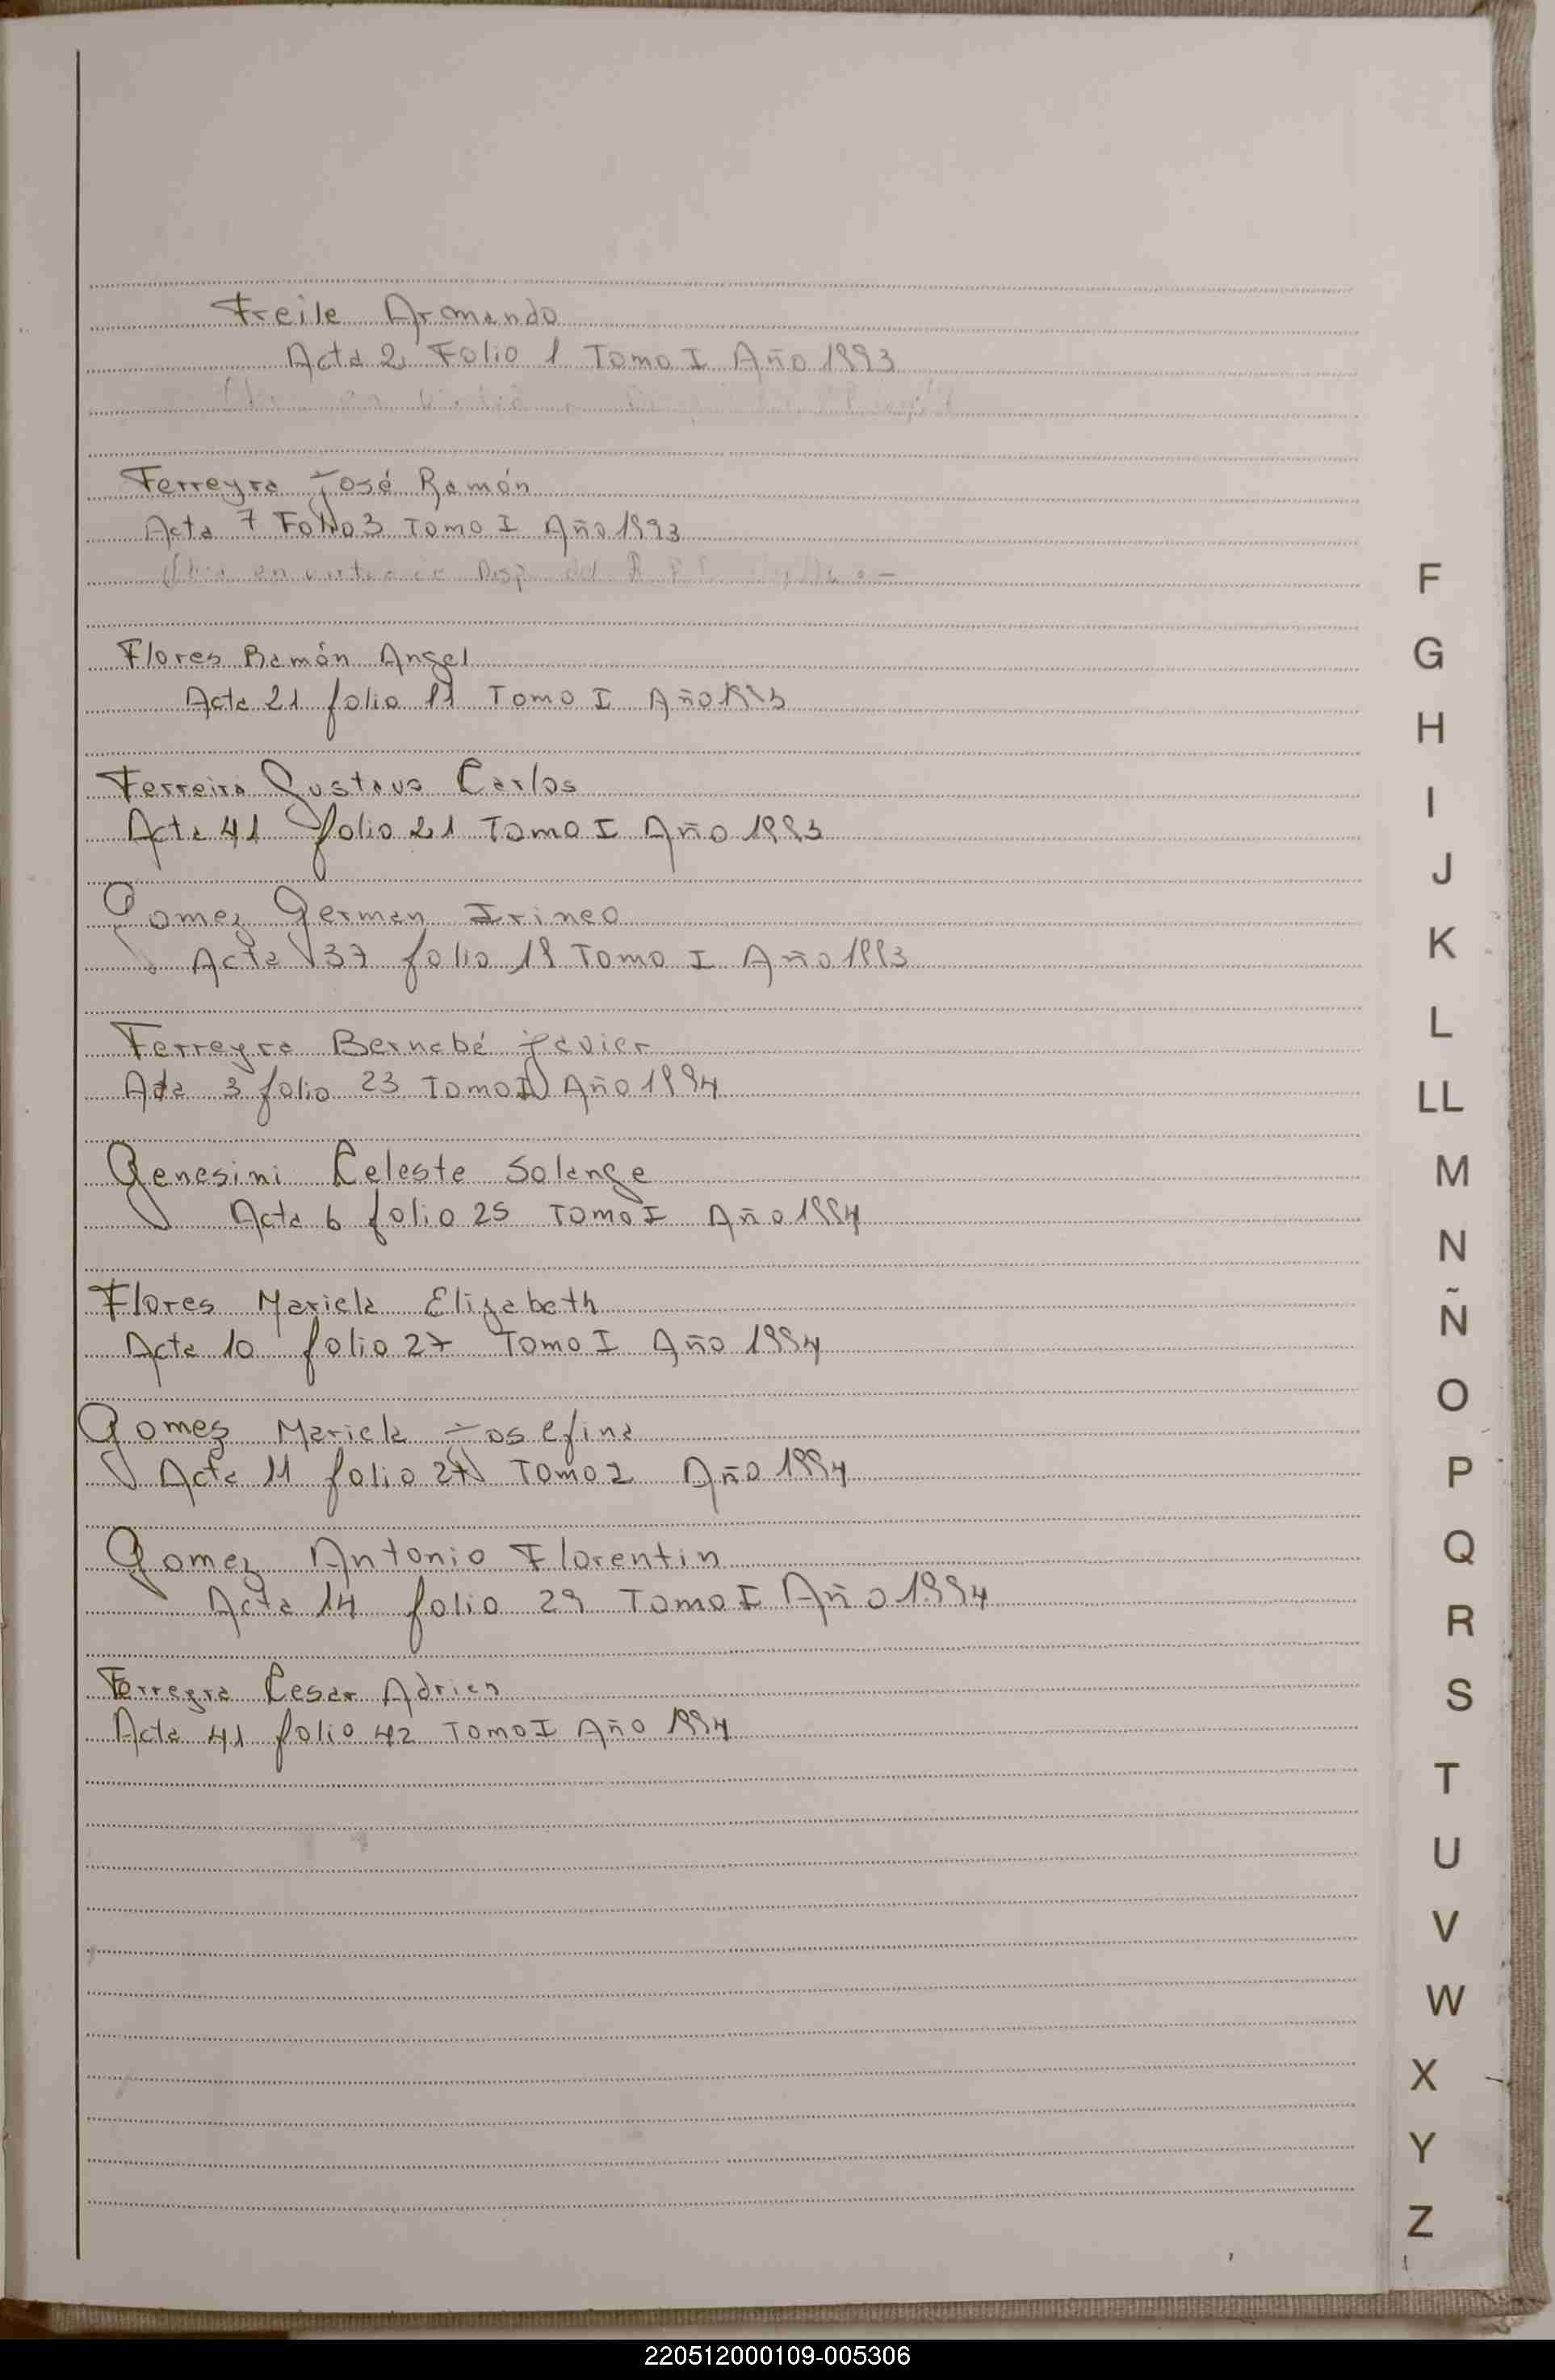 Freile Armando
Acta 2 Folio 1 Tomo I Año 1993
Ferreyra José Ramón
Acta 7 Folio 3 Tomo I Año 1993
en Disp. del
Flores Ramón Angel
Acta 21 folio 11 Tomo I Año 1993
Ferreira Gustavo Carlos
Acta 41 folio 21 Tomo I Año 1993
Gomez German Irineo
Acta 37 folio 19 Tomo I Año 1993
Ferreyra Bernabé Javier
Acta 3 folio 23 Tomo I Año 1994
Genesini Celeste Solange
Acta 6 folio 25 Tomo I Año 1994
Flores Mariela Elizabeth
Acta 10 folio 27 Tomo I Año 1994
Gomez Mariela Josefina
Acta 11 folio 27 Tomo 1 Año 1994
Gomez Antonio Florentin
Acta 14 folio 29 Tomo I Año 1994
Ferreyra Cesar Adrien
Acta 41 folio 42 Tomo I Año 1994
F
G
H
I
J
K
L
LL
M
N
Ñ
O
P
Q
R
S
T
U
V
W
X
Y
Z
220512000109-005306